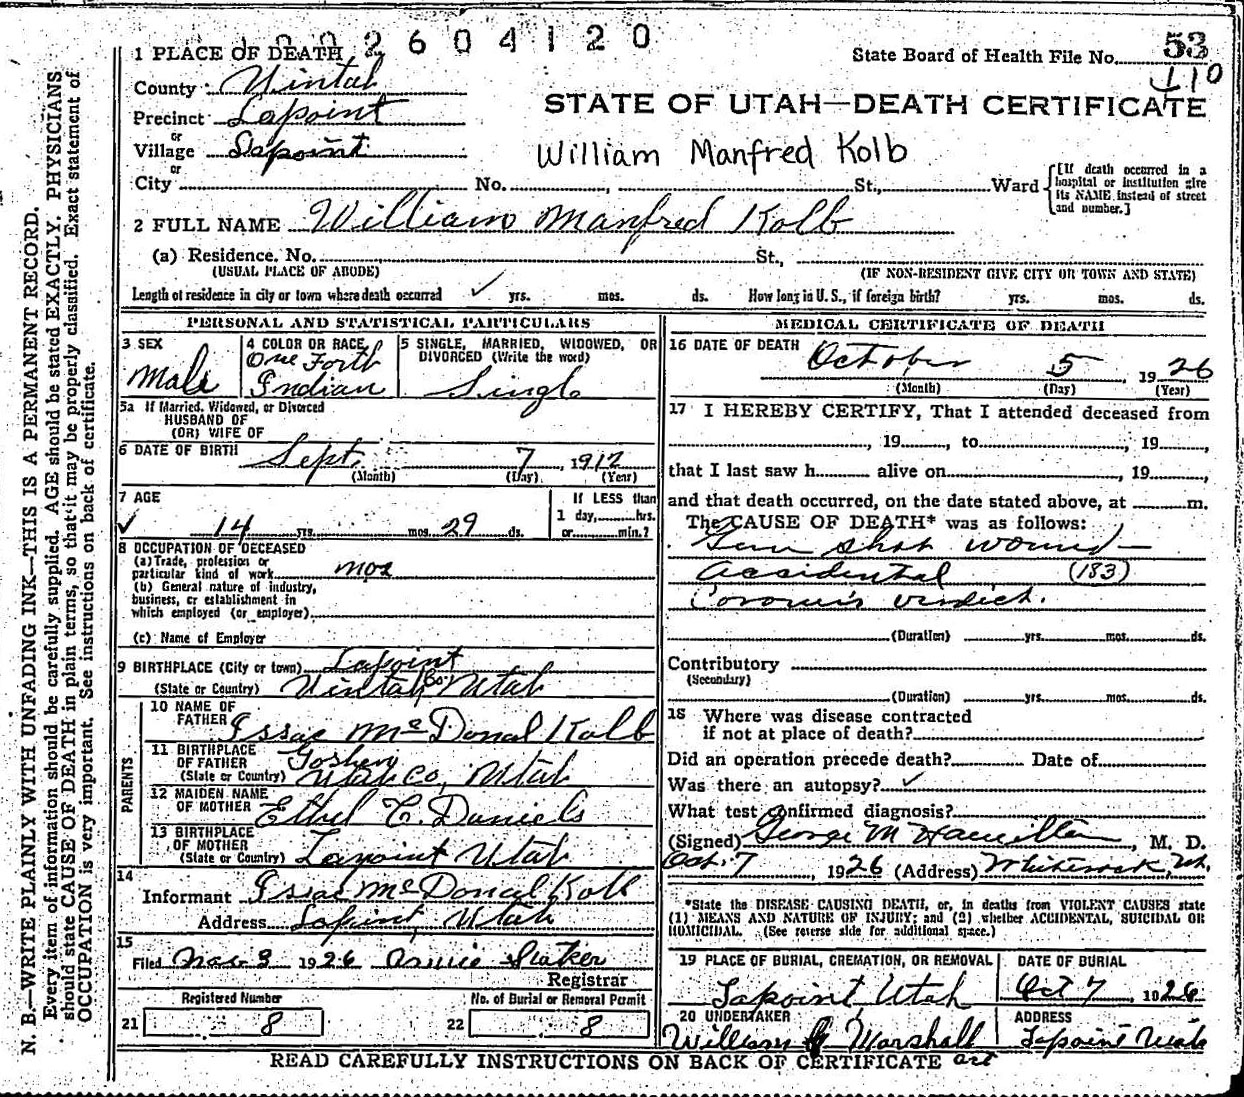 1002604120
State Board of Health File No. 53
110
1 PLACE OF DEATH
County Uintah
STATE OF UTAH—DEATH CERTIFICATE
Precinct Lapoint
or
Village Lapoint
William Manfred Kolb
or
City No. , St., Ward
[If death occurred in a hospital or institution give its NAME instead of street and number.]
2 FULL NAME William Manfred Kolb
(a) Residence. No. St.,
(USUAL PLACE OF ABODE) (IF NON-RESIDENT GIVE CITY OR TOWN AND STATE)
Length of residence in city or town where death occurred ✓ yrs. mos. ds. How long in U.S., if foreign birth? yrs. mos. ds.
PERSONAL AND STATISTICAL PARTICULARS
3 SEX
Male
4 COLOR OR RACE
One Forth
Indian
5 SINGLE, MARRIED, WIDOWED, OR
DIVORCED (Write the word)
Single
5a If Married, Widowed, or Divorced
HUSBAND OF
(OR) WIFE OF
6 DATE OF BIRTH Sept. 7, 1912
(Month) (Day) (Year)
7 AGE
✓ 14 yrs. mos. 29 ds.
If LESS than
1 day, hrs.
or min.?
8 OCCUPATION OF DECEASED
(a) Trade, profession or
particular kind of work
(b) General nature of industry,
business, or establishment in
which employed (or employer)
(c) Name of Employer
9 BIRTHPLACE (City or town) Lapoint
(State or Country) Uintah Co. Utah
PARENTS
10 NAME OF
FATHER Issac McDonal Kolb
11 BIRTHPLACE
OF FATHER Goshen
(State or Country) Utah Co, Utah
12 MAIDEN NAME
OF MOTHER Ethel C. Daniels
13 BIRTHPLACE
OF MOTHER
(State or Country) Lapoint Utah
14
Informant Issac McDonal Kolb
Address Lapoint, Utah
15
Filed Nov 3 1926 Annie Slaker
Registrar
Registered Number No. of Burial or Removal Permit
21 8 22 8
MEDICAL CERTIFICATE OF DEATH
16 DATE OF DEATH October 5, 1926
(Month) (Day) (Year)
17 I HEREBY CERTIFY, That I attended deceased from
, 19 , to , 19 ,
that I last saw h alive on , 19 ,
and that death occurred, on the date stated above, at m.
The CAUSE OF DEATH* was as follows:
Gun shot wound—
accidental (183)
Coroner's verdict.
(Duration) yrs. mos. ds.
Contributory
(Secondary)
(Duration) yrs. mos. ds.
18 Where was disease contracted
if not at place of death?
Did an operation precede death? Date of
Was there an autopsy? ✓
What test confirmed diagnosis?
(Signed) George M Hamilton, M. D.
Oct. 7, 1926 (Address) Whiterock, Ut.
*State the DISEASE CAUSING DEATH, or, in deaths from VIOLENT CAUSES state
(1) MEANS AND NATURE OF INJURY; and (2) whether ACCIDENTAL, SUICIDAL OR
HOMICIDAL. (See reverse side for additional space.)
19 PLACE OF BURIAL, CREMATION, OR REMOVAL
Lapoint Utah
DATE OF BURIAL
Oct 7, 1926
20 UNDERTAKER
William Marshall
ADDRESS
Lapoint Utah
READ CAREFULLY INSTRUCTIONS ON BACK OF CERTIFICATE
N. B.—WRITE PLAINLY WITH UNFADING INK—THIS IS A PERMANENT RECORD.
Every item of information should be carefully supplied. AGE should be stated EXACTLY. PHYSICIANS
should state CAUSE OF DEATH in plain terms, so that it may be properly classified. Exact statement of
OCCUPATION is very important. See instructions on back of certificate.